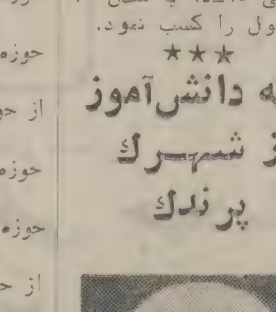 ول را کسب نمود.
★★★
دانش‌آموز
شهرك
پرندك
حوزه
از
حوزه
حوزه
از